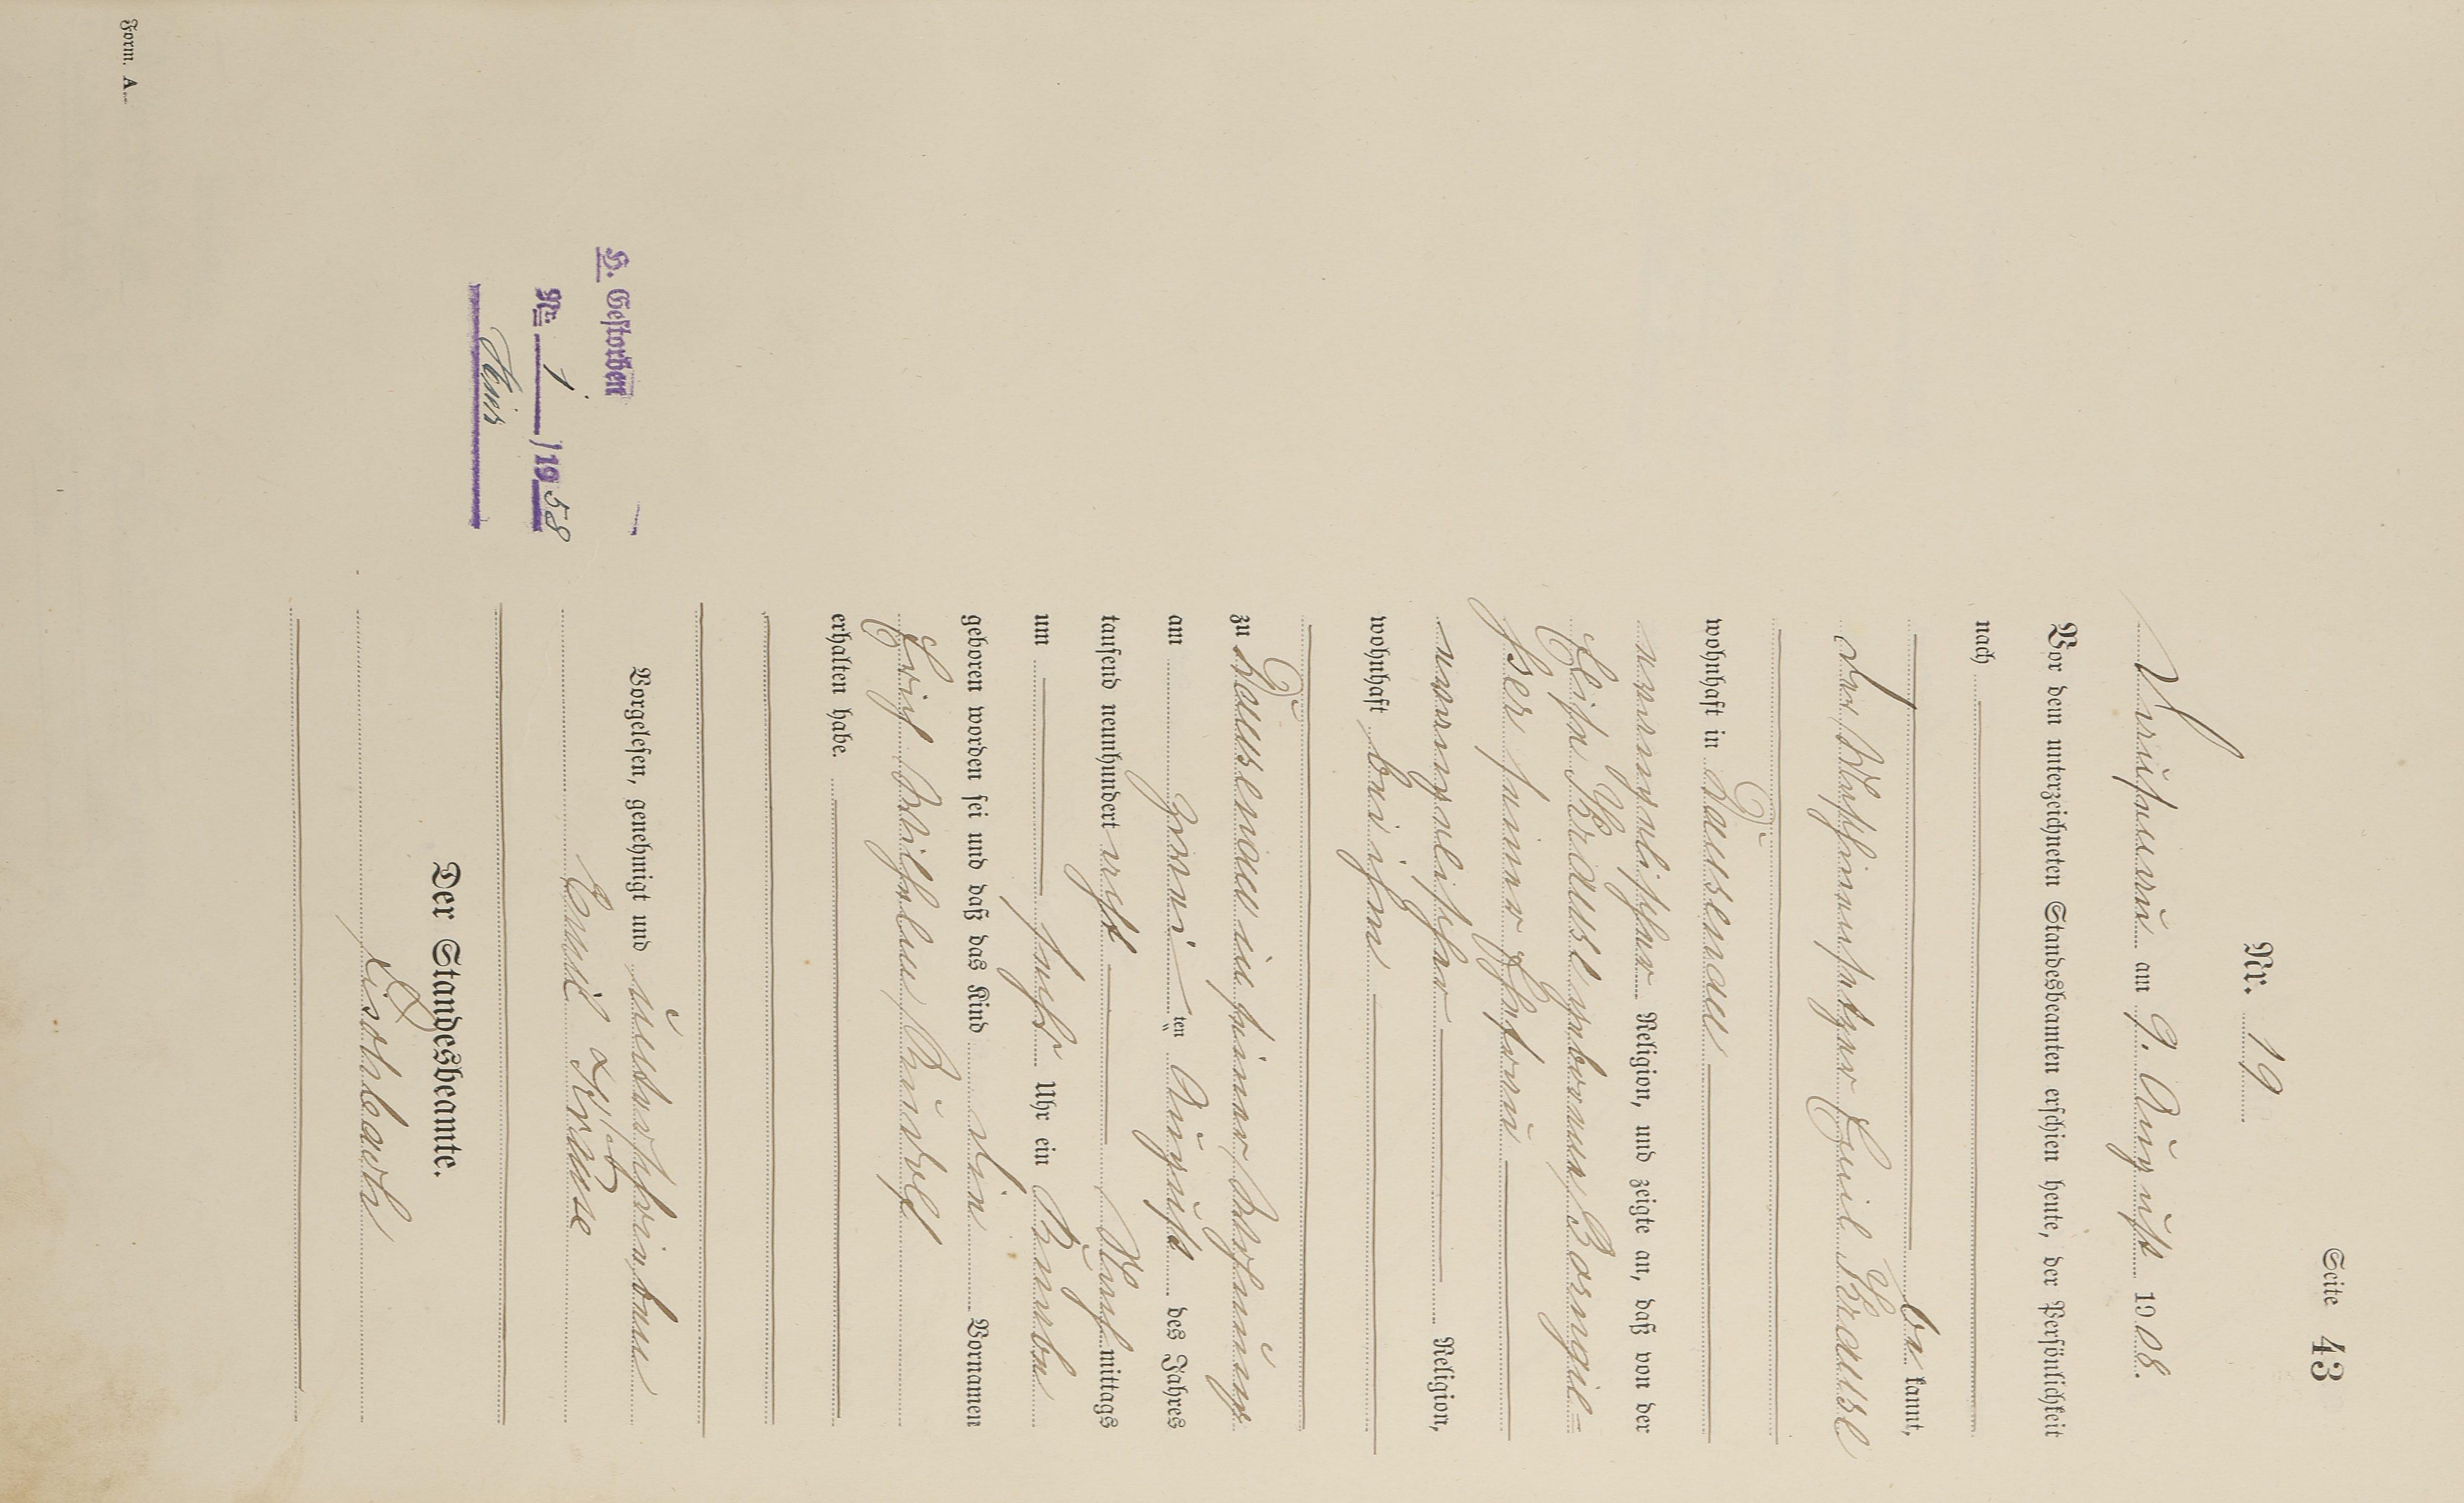 Seite 43
Nr. 19
am 9. August 1908.
Vor dem unterzeichneten Standesbeamten erschien heute, der Persönlichkeit
nach
be kannt,
der Maschinensetzer Emil Krause
wohnhaft in Dausenau
evangelischer Religion, und zeigte an, daß von der
Elise Krause geborenen Borngie-
sser seiner Ehefrau
evangelischer Religion,
wohnhaft bei ihm
zu Dausenau in seiner Wohnung
am zwei ten August des Jahres
tausend neunhundert acht Nach mittags
um sechs Uhr ein Knabe
geboren worden sei und daß das Kind die Vornamen
Erich Wilhelm Rudolf
erhalten habe.
Vorgelesen, genehmigt und unterschrieben
Emil Krause
Der Standesbeamte.
H. Gestorben
Nr. 1 /1958
Form. A.